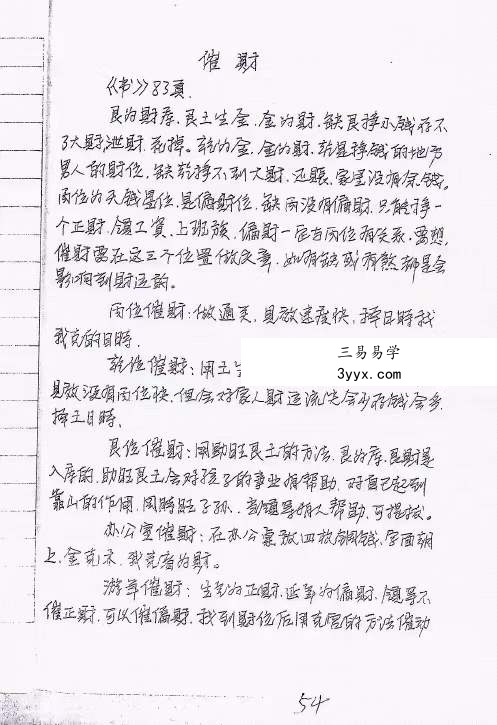 催财
《书》83页.
艮为财库.艮土生金.金为财.缺艮挣小钱存不
了大财,泄财.花掉.乾为金.金为财.乾是挣钱的地方
男人的财位.缺乾挣不到大财.还账.家里没有余钱.
丙位为天钱星位.是偏财位.缺丙没有偏财.只能挣一
个正财.领工资.上班族.偏财一定与丙位有关系.要想
催财要在这三个位置做文章.如有缺或有煞都是会
影响到财运的.
丙位催财:做通关.见效速度快.择日時我
我克的日時.
乾位催财:用土生
三易易学
3yyx.com
见效没有丙位快.但会对家人财运流失会少存钱会多.
择土日時.
艮位催财:用助旺艮土的方法.艮为库.艮财是
入库的.助旺艮土会对孩子的事业有帮助.对自己起到
靠山的作用.同時旺子孙.有领导贵人帮助.可提拔.
办公室催财:在办公桌放四枚铜钱.字面朝
上.金克木.我克者为财.
游年催财:生气为正财.延年为偏财.领导不
催正财.可以催偏财.找到财位后用克宫的方法催动
54